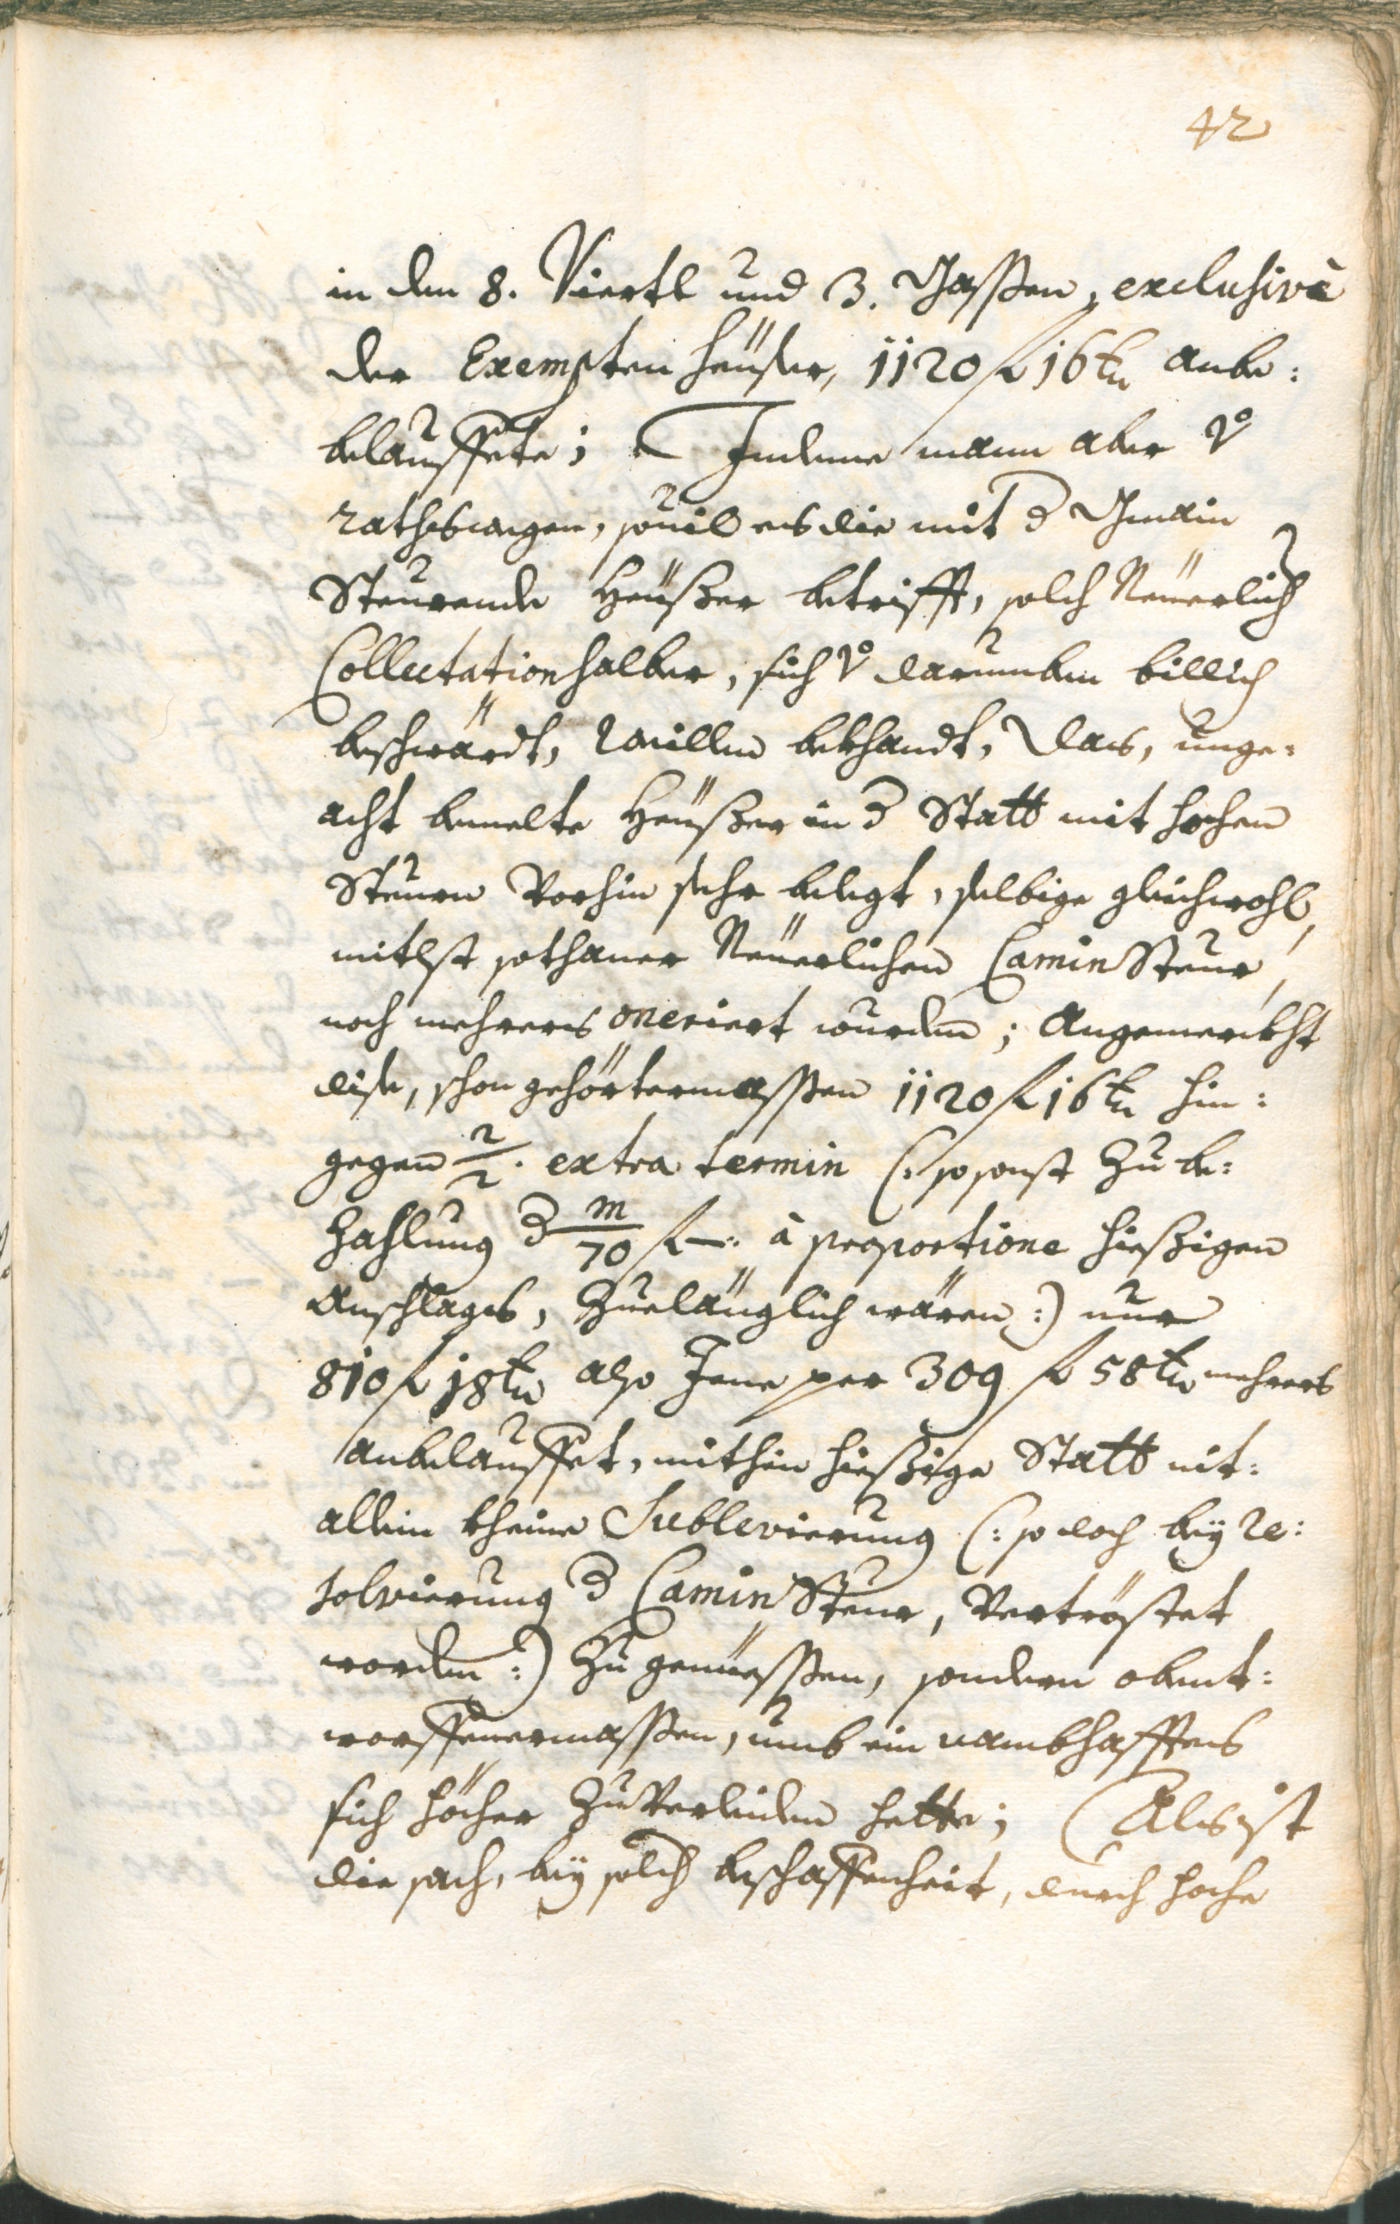 42
in den 8. Viertl und 3. Gassen, exclusivè
der Exempten Heüser, 1120 f 16 kr anbe:
belauffete; Indeme mann aber V°
rathswegen, sovil es die mit d Gmain
Steurende Heüßer betrifft, solch Neüerlich
Collectation halber, sich V° darumben billich
beschwärdt, weillen bekhandt, das, unge:
acht bemelte Heüßer in d Statt mit hochen
Steuren vorhin sehr belegt, selbige gleichwohl,
mitlst sothaner Neüerlichen Camin Steur,
noch mehrers oneriert wurden; Angemerckht
dise, schon gehörtermassen 1120 f 16 kr hin:
gegen 2/2. extra termin (: so sonst zu be:
zahlung d m/70 f —. à proportione hießigen
Anschlags, zuelänglich wären :) nur
810 f 18 kr also Jene per 309 f 58 kr mehrers
anbelauffet, mithin hießige Statt nit:
allein kheine Sublevierung (: so doch bey re:
solvierung d Camin Steur, vertröstet
worden :) zu genüessen, sondern obent:
worffnermassen, umb ein nambhafftes
sich höcher zu verleiden hette; Als ist
die sach, bey solch beschaffenheit, durch hoche